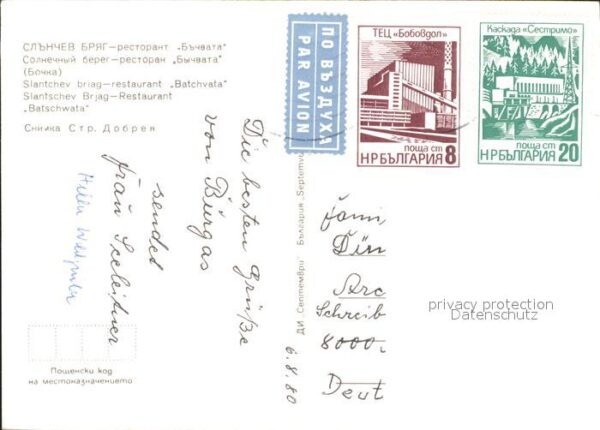 СЛЪНЧЕВ БРЯГ—ресторант „Бъчвата"
Солнечный берег—ресторан „Бычвата"
(Бочка)
Slantchev briag—restaurant „Batchvata"
Slantschev Brjag—Restaurant
„Batschwata"
Снимка Стр. Добрев
ПО ВЪЗДУХА
PAR AVION
ТЕЦ «Бобовдол»
поща ст
НРБЪЛГАРИЯ 8
Каскада «Сестримо»
поща ст
НРБЪЛГАРИЯ 20
Die besten Grüße
von Burgas
sendet
Frau
6.8.80
ДИ „Септември" България „Septemvri
Fami
Din
Arc
Schreib
8000
Deut
privacy protection
Datenschutz
Пощенски код
на местоназначението